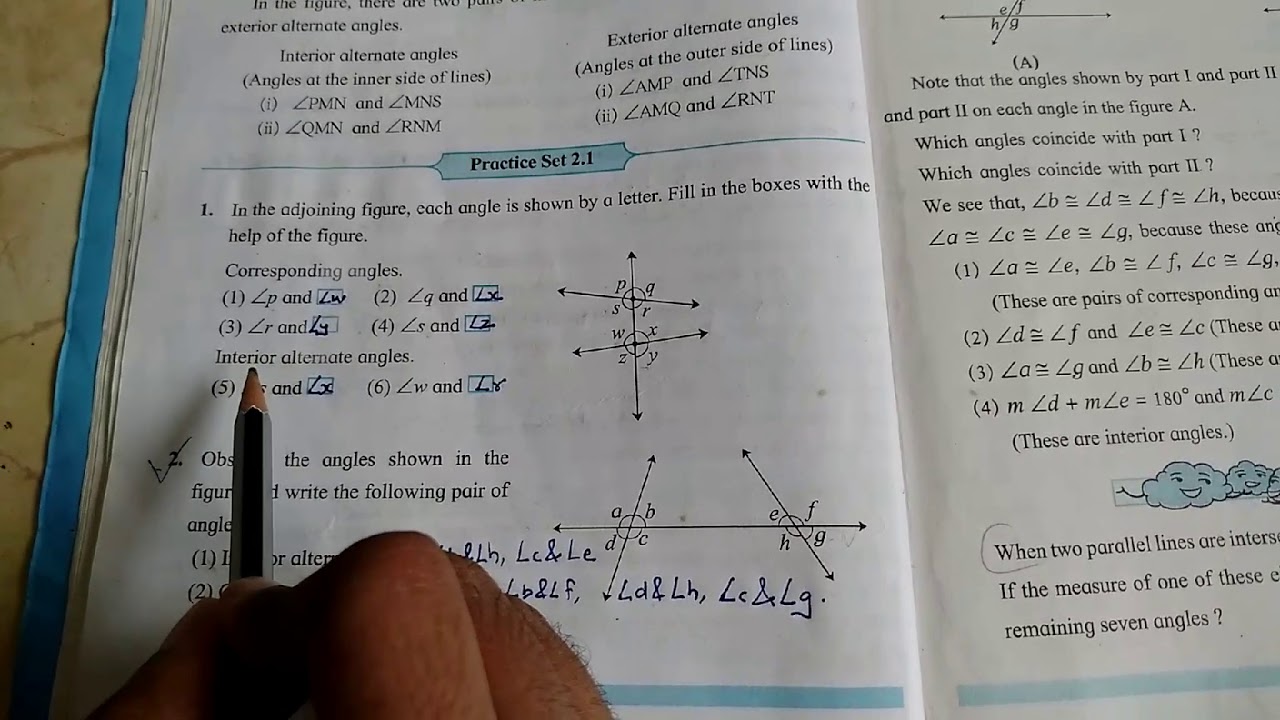 In the figure, there are two
exterior alternate angles.
Interior alternate angles
(Angles at the inner side of lines)
(i) ∠PMN and ∠MNS
(ii) ∠QMN and ∠RNM
Exterior alternate angles
(Angles at the outer side of lines)
(i) ∠AMP and ∠TNS
(ii) ∠AMQ and ∠RNT
Practice Set 2.1
1. In the adjoining figure, each angle is shown by a letter. Fill in the boxes with the
help of the figure.
Corresponding angles.
(1) ∠p and ∠w (2) ∠q and ∠x
(3) ∠r and ∠y (4) ∠s and ∠z
Interior alternate angles.
(5) and ∠x (6) ∠w and ∠r
p q
s r
w x
z y
2. the angles shown in the
write the following pair of
(1)
∠h, ∠c & ∠e
(2)
∠b & ∠f, ∠d & ∠h, ∠c & ∠g.
a b
d c
e f
h g
e f
h g
(A)
Note that the angles shown by part I and part II
and part II on each angle in the figure A.
Which angles coincide with part I ?
Which angles coincide with part II ?
We see that, ∠b ≅ ∠d ≅ ∠f ≅ ∠h,
∠a ≅ ∠c ≅ ∠e ≅ ∠g, because these
(1) ∠a ≅ ∠e, ∠b ≅ ∠f, ∠c ≅ ∠g,
(These are pairs of corresponding
(2) ∠d ≅ ∠f and ∠e ≅ ∠c (These
(3) ∠a ≅ ∠g and ∠b ≅ ∠h (These
(4) m ∠d + m∠e = 180° and m∠c
(These are interior angles.)
When two parallel lines are
If the measure of one of these
remaining seven angles ?